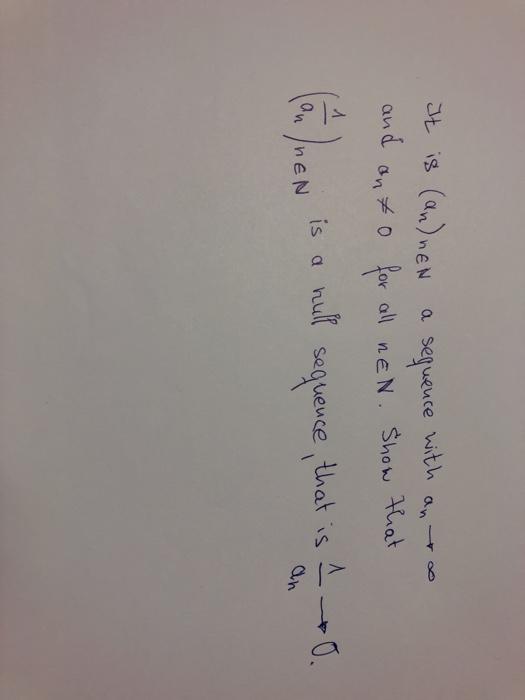 It is (aₙ)n∈ℕ a sequence with aₙ → ∞
and aₙ ≠ 0 for all n∈ℕ. Show that
(1/aₙ)n∈ℕ is a null sequence, that is 1/aₙ → 0.